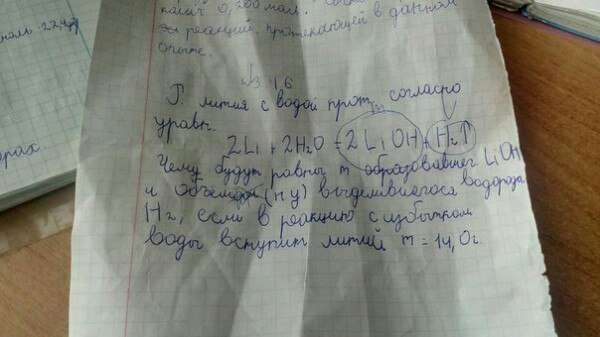 0,200 моль.
реакций, протекающей в данном
опыте.
№3 16
Р. лития с водой прот. согласно
уравн.
2Li + 2H2O = 2LiOH + H2↑
Чему будут равны m образовавшег LiOH
и объем (н у) выделившегося водорода
H2, если в реакцию с избытком
воды вступит литий m = 14,0г.